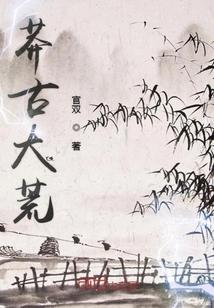 莽古大荒
官双 ◎ 著